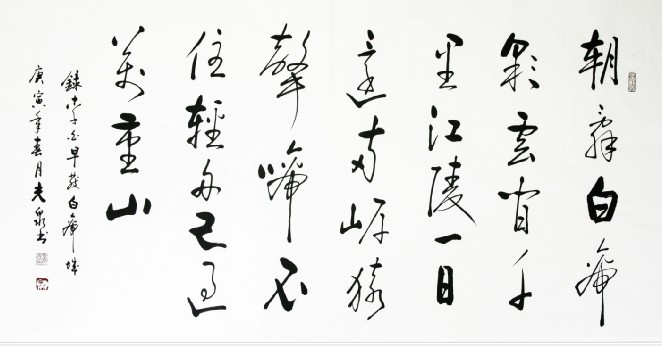 朝辭白帝
彩雲間千
里江陵一日
還兩岸猿
聲啼不
住輕舟已過
萬重山
錄李白早發白帝城
庚寅年春月泉書